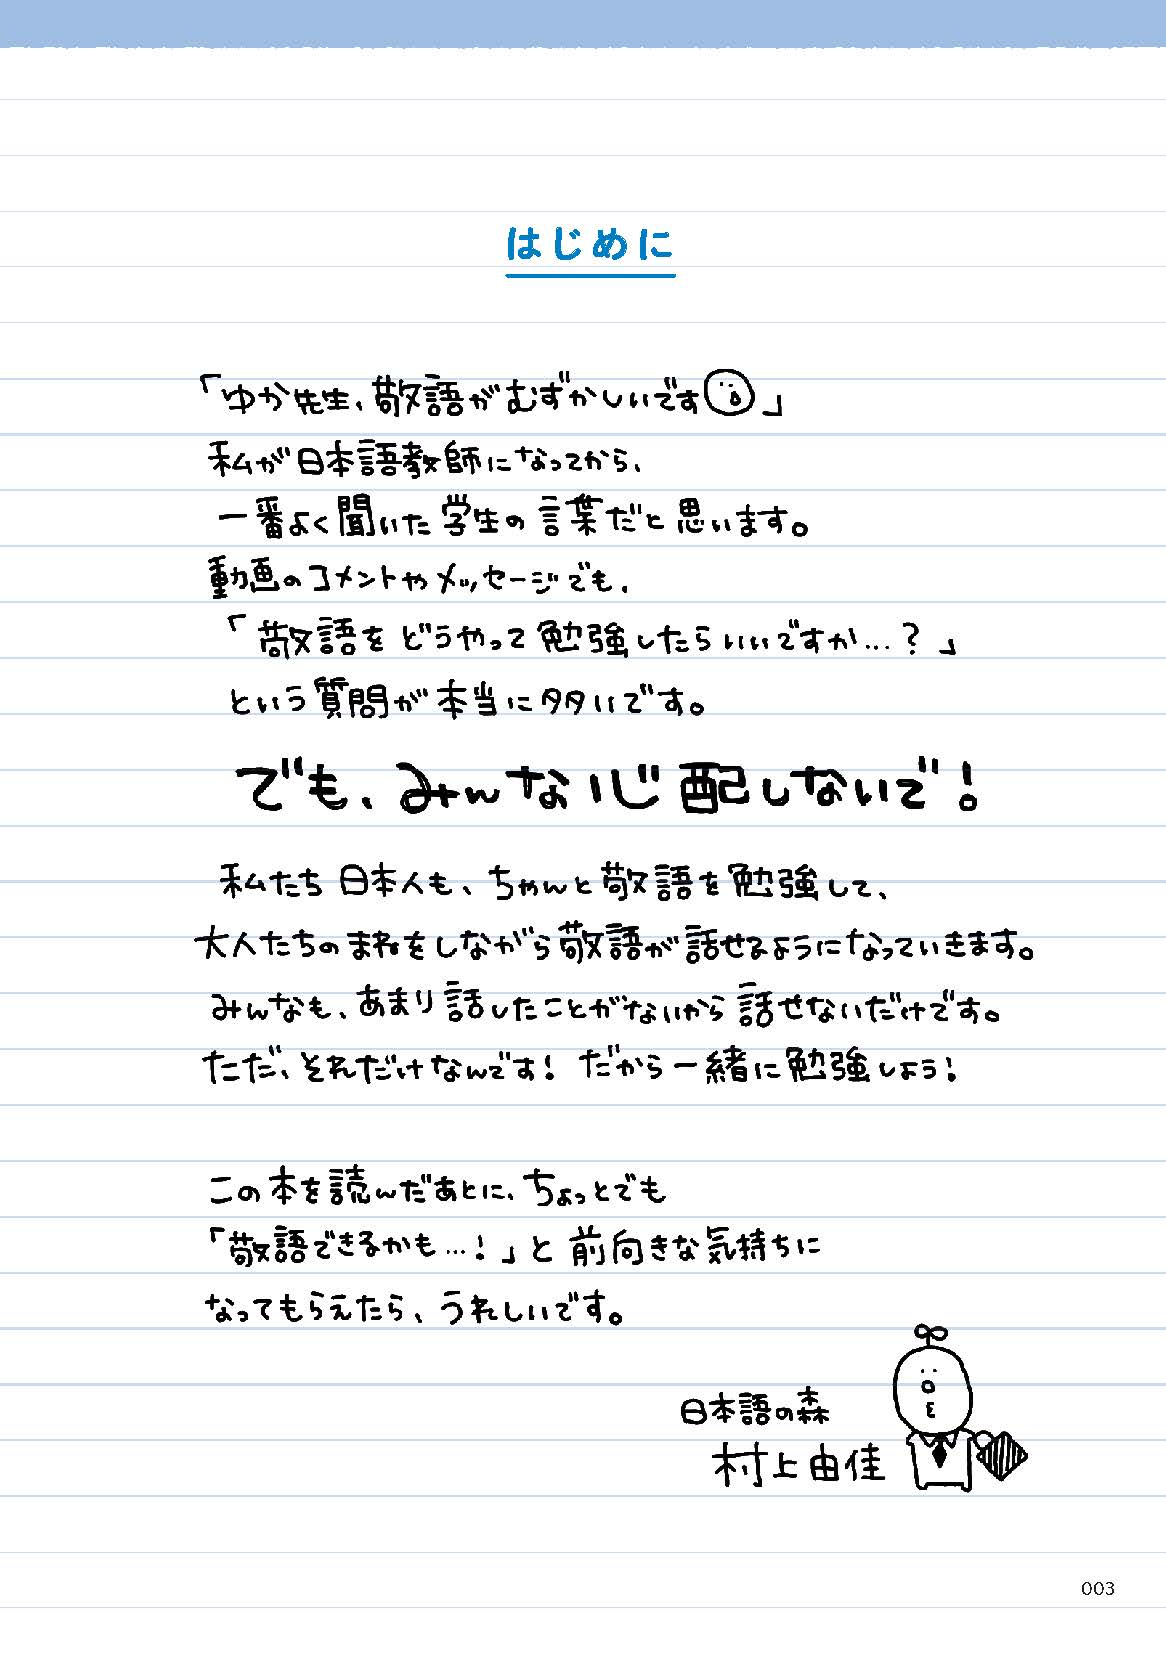 はじめに
「ゆか先生、敬語がむずかしいです」
私が日本語教師になってから、
一番よく聞いた学生の言葉だと思います。
動画のコメントやメッセージでも、
「敬語をどうやって勉強したらいいですか…？」
という質問が本当に多いです。
でも、みんな心配しないで！
私たち日本人も、ちゃんと敬語を勉強して、
大人たちのまねをしながら敬語が話せるようになっていきます。
みんなも、あまり話したことがないから話せないだけです。
ただ、それだけなんです！だから一緒に勉強しよう！
この本を読んだあとに、ちょっとでも
「敬語できるかも…！」と前向きな気持ちに
なってもらえたら、うれしいです。
日本語の森
村上由佳
003